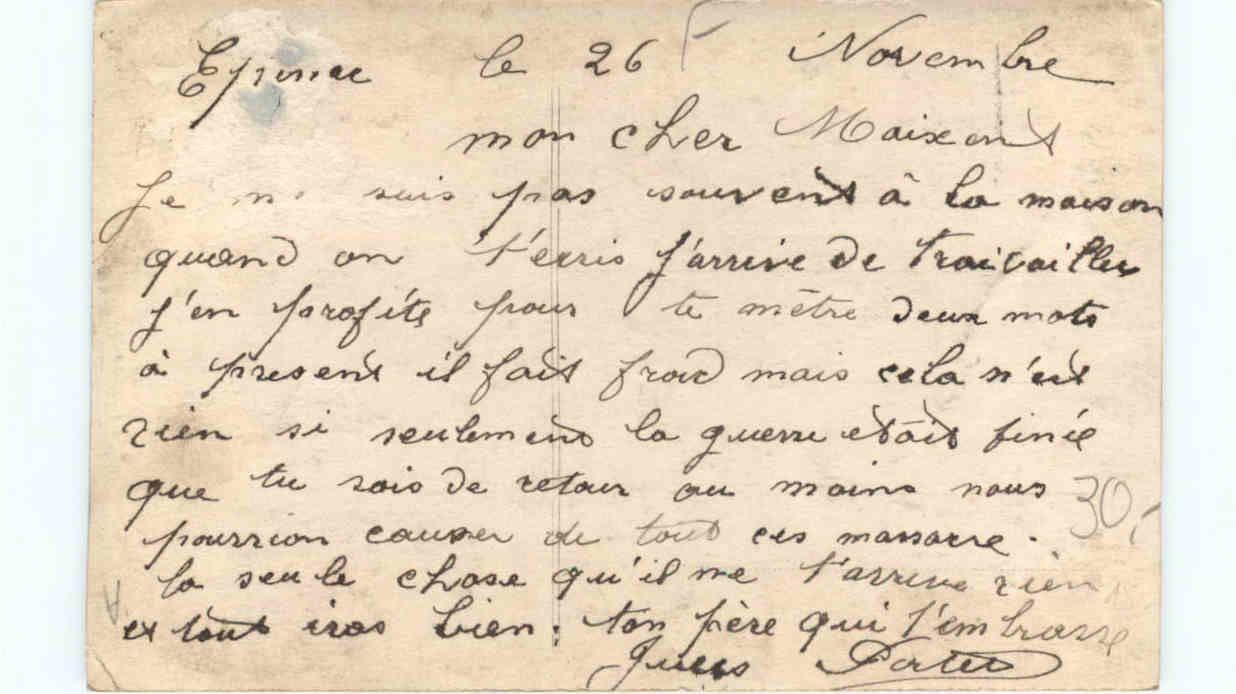 Epinac le 26 Novembre
mon cher Maixent
Je ne suis pas souvent à la maison
quand on t'ecris j'arrive de travailler
j'en profite pour te mètre deux mots
à present il fait froid mais cela n'est
rien si seulement la guerre était finie
que tu sois de retour au moins nous
pourrion causer de tout ces massacre.
30
la seule chose qu'il ne t'arrive rien
et tout iras bien. ton père qui t'embrasse
Jules